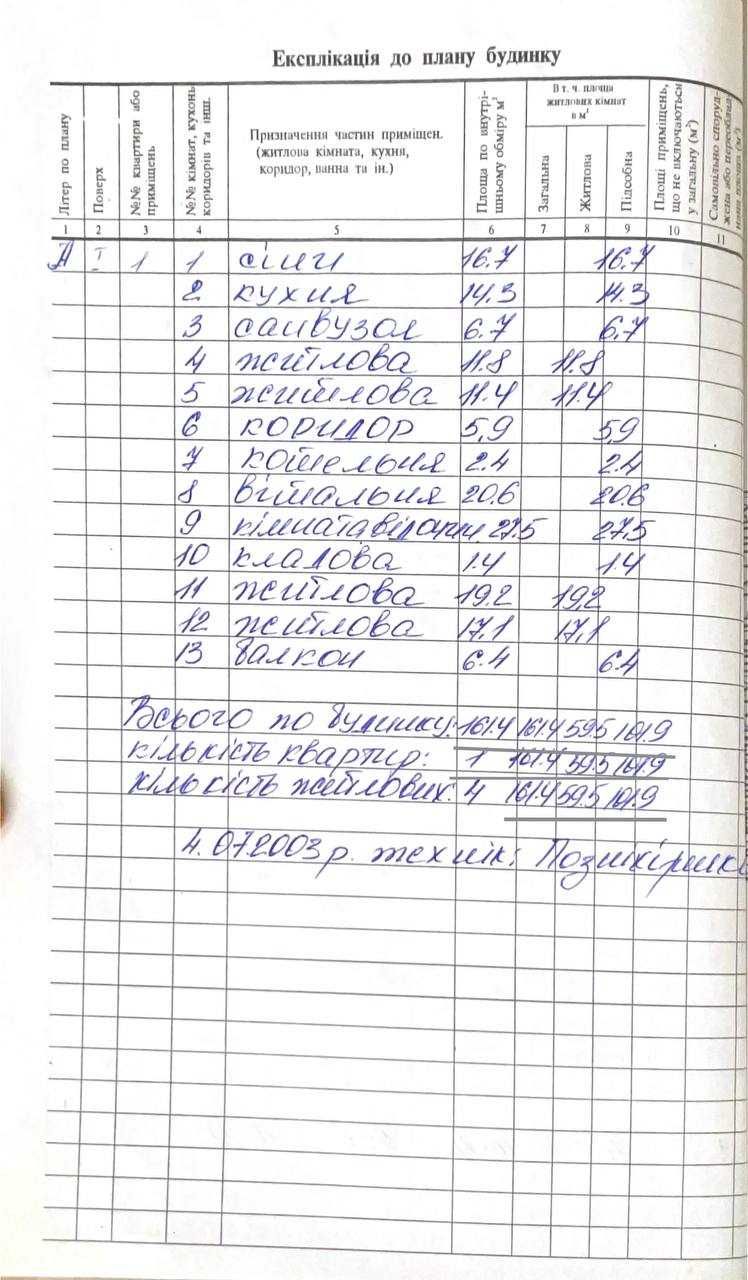 Експлікація до плану будинку
Літер по плану
Поверх
№№ квартири або приміщень
№№ кімнат, кухонь коридорів та інш.
Призначення частин приміщен. (житлова кімната, кухня, коридор, ванна та ін.)
Площа по внутрішньому обміру м²
В т. ч. площа житлових кімнат в м²
Загальна
Житлова
Підсобна
Площі приміщень, що не включаються у загальну (м²)
1 2 3 4 5 6 7 8 9 10 11
А І 1 1 сіни 16.7 16.7
2 кухня 14.3 14.3
3 санвузол 6.7 6,7
4 житлова 11.8 11.8
5 житлова 11.4 11.4
6 коридор 5,9 5,9
7 котельня 2.4 2.4
8 вітальня 20.6 20.6
9 кімната відпочин. 27.5 27,5
10 кладова 1.4 1.4
11 житлова 19.2 19,2
12 житлова 17,1 17,1
13 балкон 6.4 6.4
Всього по будинку: 161.4 161.4 59.5 101.9
кількість квартир: 1 161.4 59.5 101.9
кількість житлових: 4 161.4 59.5 101.9
4.07.2003 р. технік: